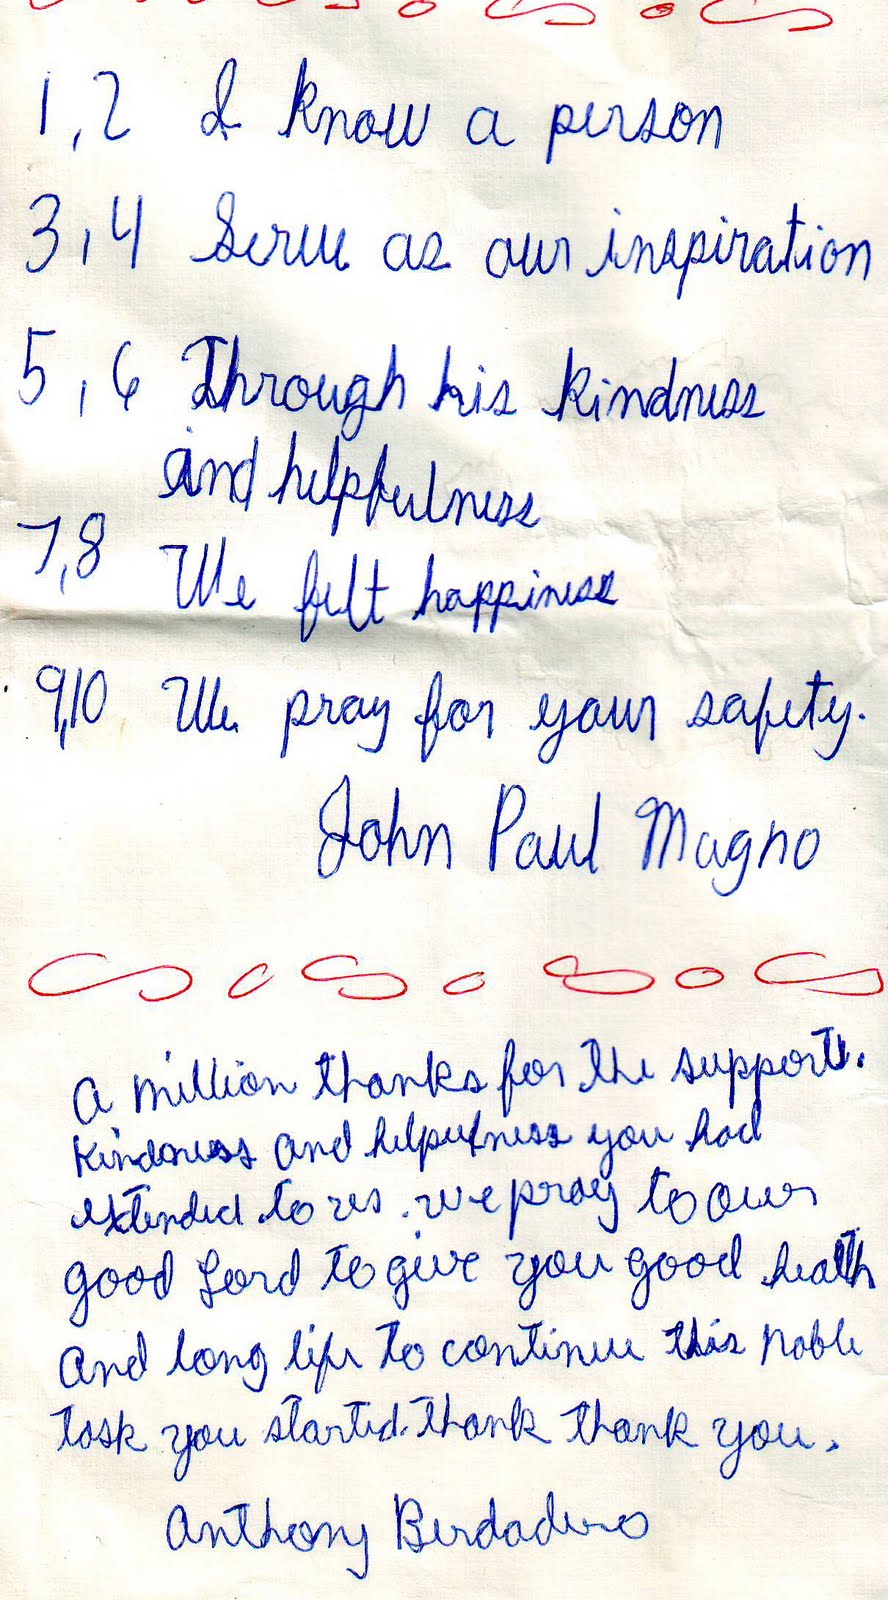 1,2 I know a person
3,4 Serve as our inspiration
5,6 Through his kindness
and helpfulness
7,8 We felt happiness
9,10 We pray for your safety.
John Paul Magno
A million thanks for the support.
Kindness and helpfulness you had
extended to us. We pray to our
good Lord to give you good health
And long life to continue this noble
task you started. Thank thank you.
Anthony Berdadero